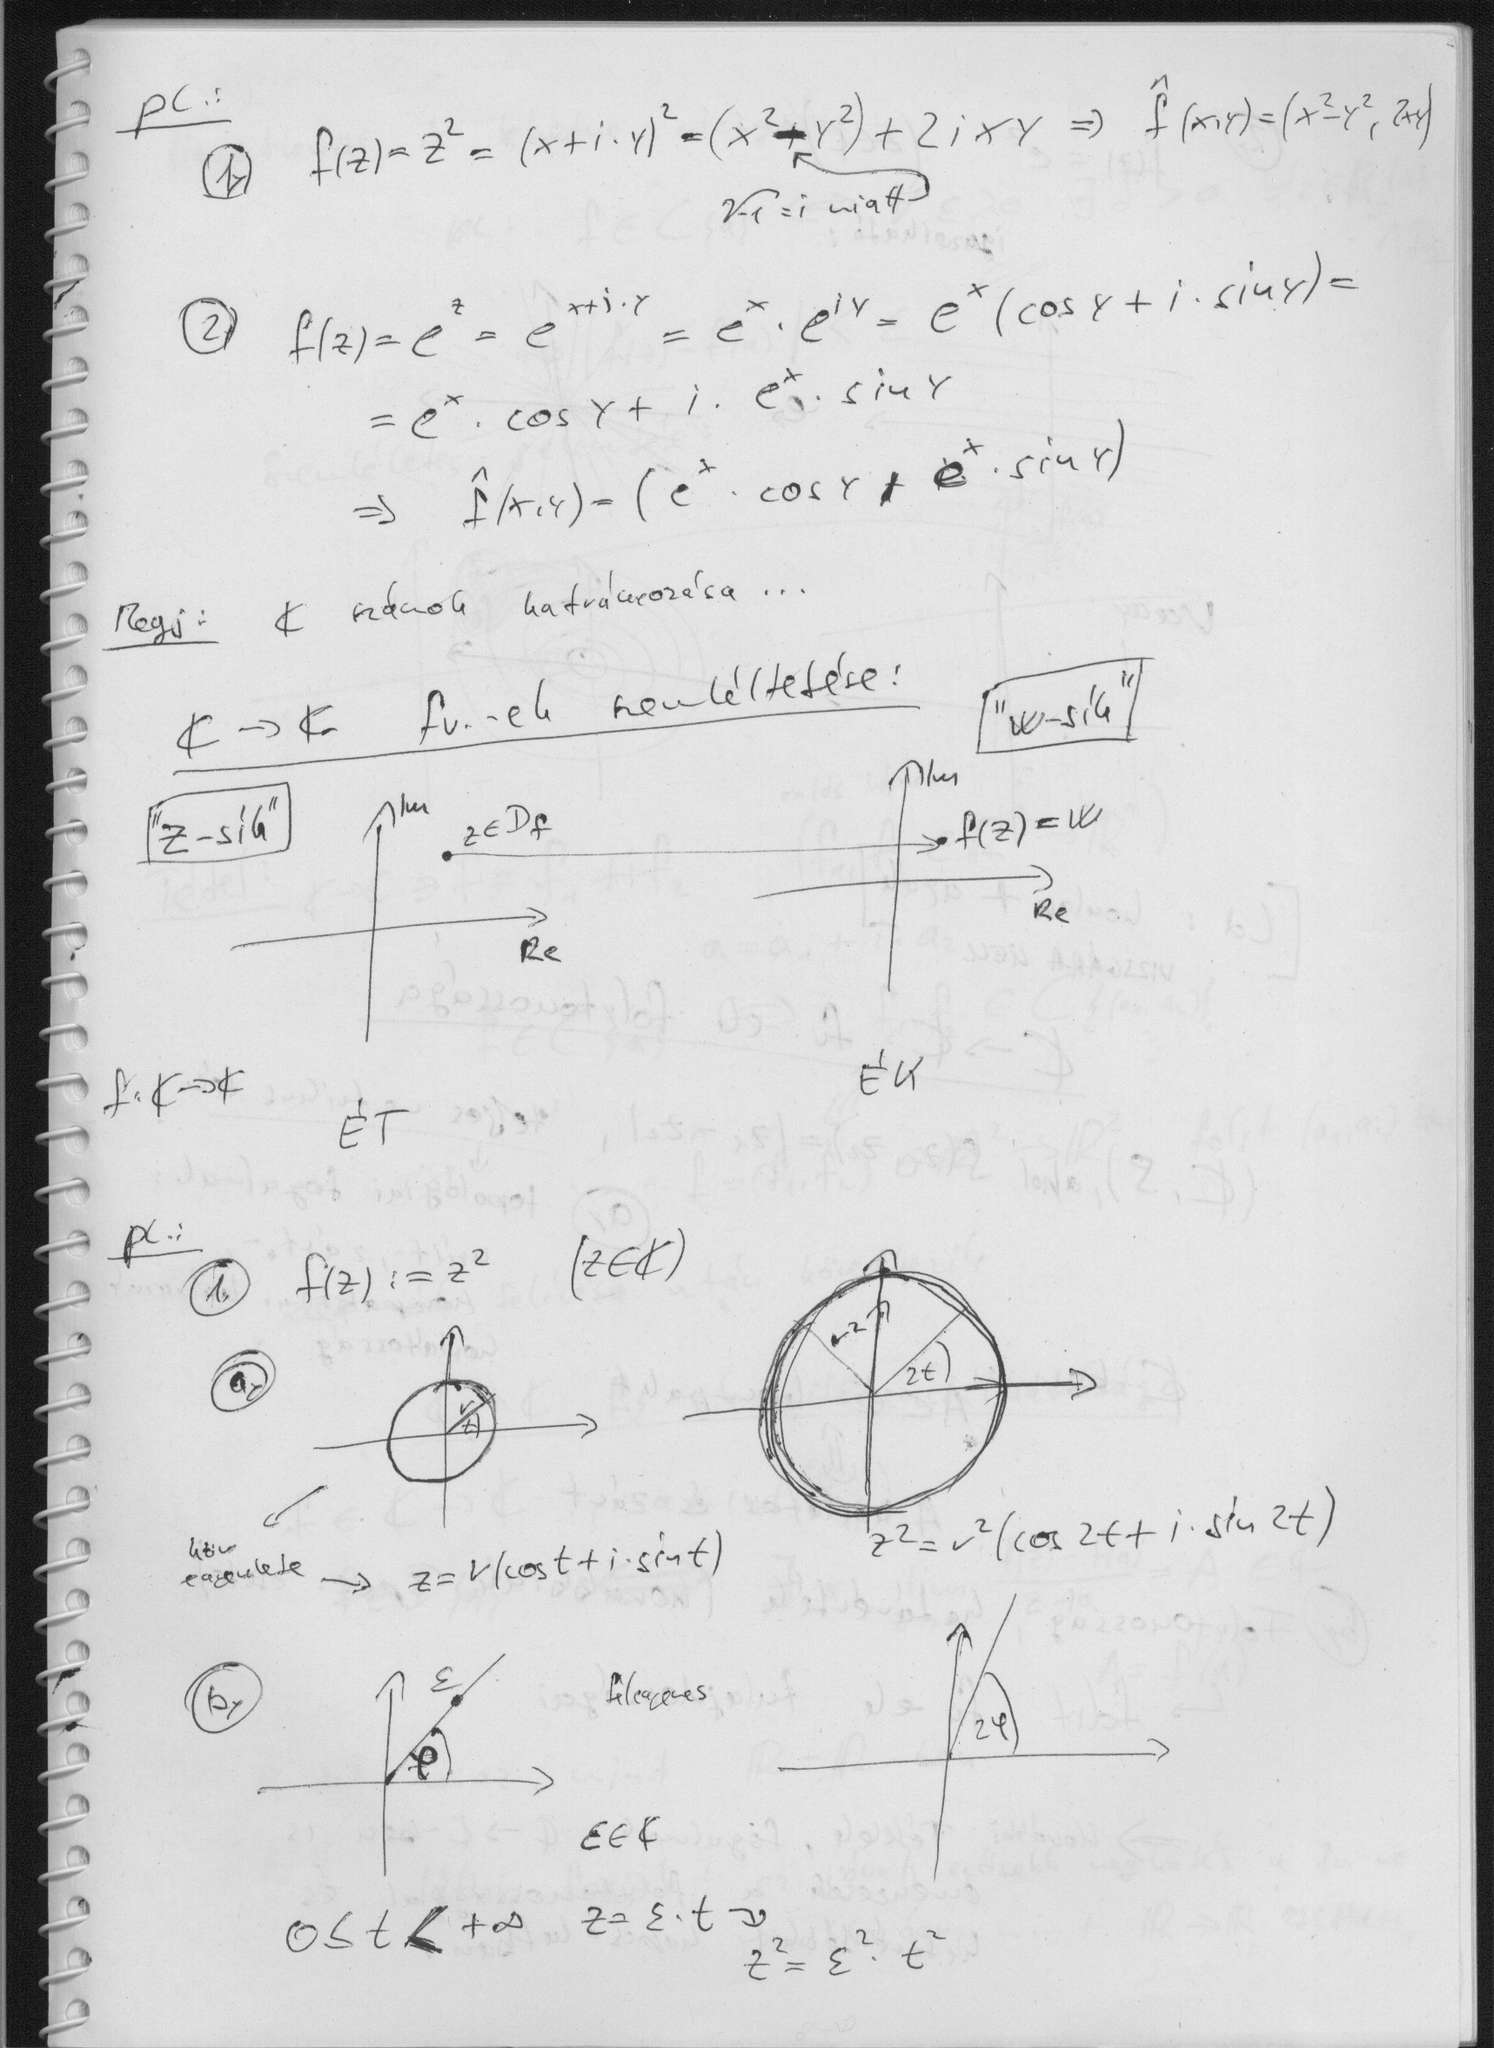 pl.:
1, f(z) = z² = (x+i·y)² = (x²-y²) + 2ixy ⇒ f̂(x,y) = (x²-y², 2xy)
√-1 = i miatt
2, f(z) = e^z = e^{x+i·y} = e^x · e^{iy} = e^x (cos y + i · sin y) =
= e^x · cos y + i · e^x · sin y
⇒ f̂(x,y) = (e^x · cos y, e^x · sin y)
Megj: ℂ számok hatványozása ...
ℂ → ℂ fv.-ek szemléltetése:
"w-sík"
"z-sík"
Im
z∈Df
Re
Im
f(z) = w
Re
f: ℂ→ℂ
ÉT
ÉK
pl.:
1, f(z) := z² (z∈ℂ)
a,
r
t
r²
2t
z² = r² (cos 2t + i · sin 2t)
→ z = r(cos t + i·sin t)
b,
ε
φ
félegyenes
2φ
ε∈ℂ
0≤t<+∞ z = ε·t →
z² = ε² · t²